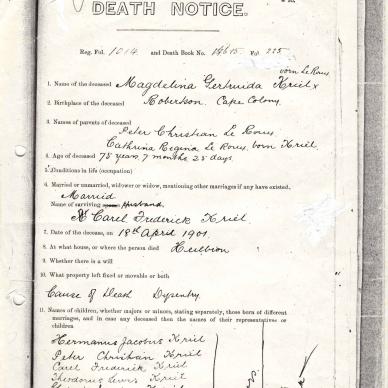 DEATH NOTICE.
Reg. Fol. 1014 and Death Book No. Fol. 225
born Le Roux
1. Name of the deceased Magdelina Gertruida Kriel
2. Birthplace of the deceased Robertson. Cape Colony.
3. Names of parents of deceased
Peter Christian Le Roux
Cathrina Regina Le Roux born Kriel.
4. Age of deceased 75 years 7 months 25 days.
5. Conditions in life (occupation)
6. Married or unmarried, widower or widow, mentioning other marriages if any have existed.
Married
Name of surviving Husband
Carel Frederick Kriel
7. Date of the decease, on 18th April 1901
8. At what house, or where the person died Heilbron
9. Whether there is a will
10. What property left fixed or movable or both
Cause of Death Dysentry
11. Names of children, whether majors or minors, stating separately, those born of different
marriages, and in case any deceased then the names of their representatives or
children
Hermanus Jacobus Kriel
Peter Christian Kriel
Carel Frederick Kriel
Theodorus Kriel